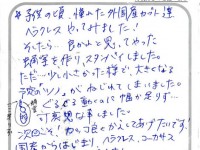 子供の頃、憧れた外国産カブト達
ヘラクレスやってみました！
そしたら 良かれと思ってやった
蛹室を作り、スタンバイしました。
ただ…少し小さかった様で、大きくなる
頭のツノ」がねじれてしまいました。
ぐるぐる動くのに幅が足りず…
可哀想な事しました。
次回こそ！カッコ良くかえしてあげたいです！
国産からはじまり、ヘラクレス、コーカサス